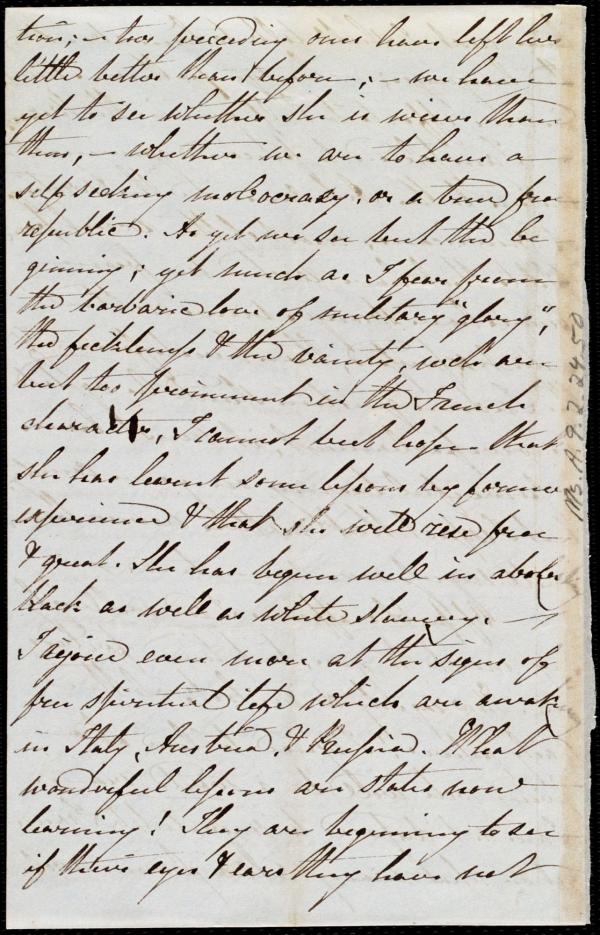 tion; – two preceding ones have left her
little better than before; – we have
yet to see whether she is wiser than
then, – whether we are to have a
self seeking mobocrasy, or a true free
republic. As yet we see but the be
ginning; yet much as I fear from
the barbaric love of military "glory",
the fickleness & the vanity, wch are
but too prominent in the French
character, I cannot but hope that
she has learnt some lessons by former
experience & that she will rise free
& great. She has begun well in abolish
black as well as white slavery. –
I rejoice even more at the signs of
free spiritual life which are awaking
in Italy, Austria, & Prussia. What
wonderful lessons are states now
learning! They are beginning to see
if their eyes & ears they have not
Ms. A. 9. 2. 24. 50